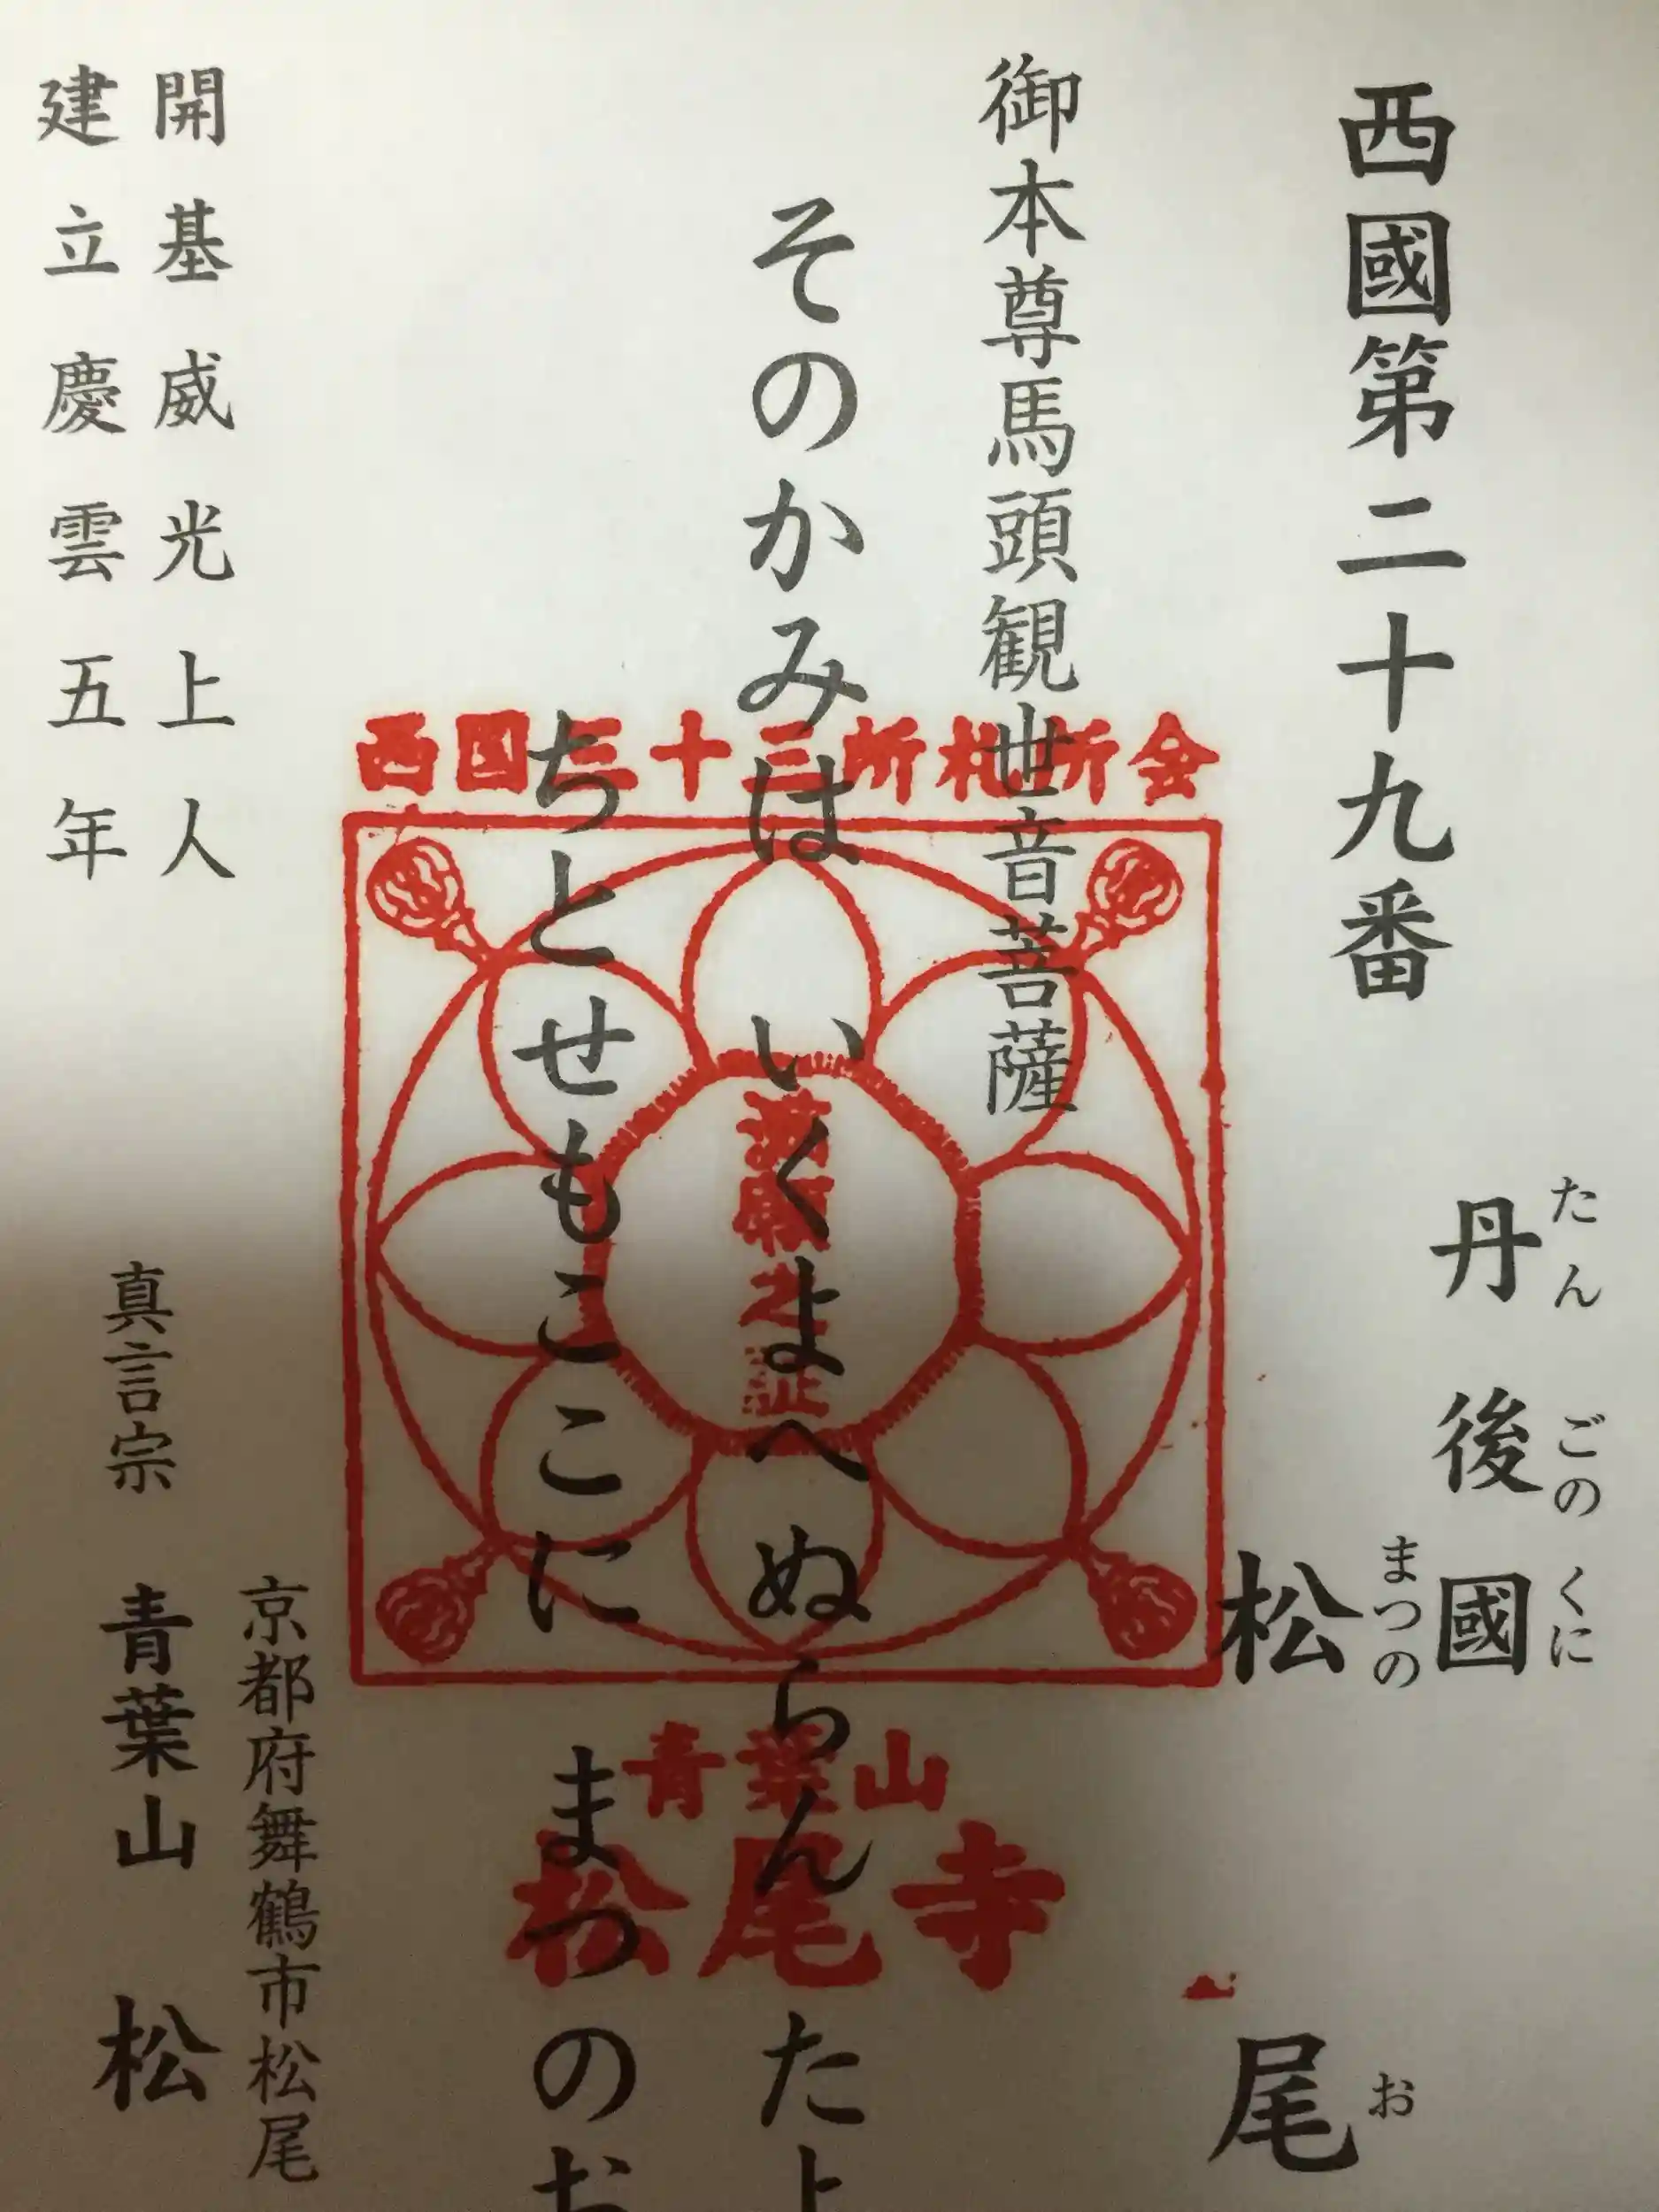 西國第二十九番
丹後國
たんごのくに
松尾
まつのお
御本尊馬頭観世音菩薩
そのかみは いくよへぬらんたよ
ちとせもここに まつのお
開基威光上人
建立慶雲五年
京都府舞鶴市松尾
真言宗 青葉山 松
西国三十三所札所会
満願之証
青葉山
松尾寺